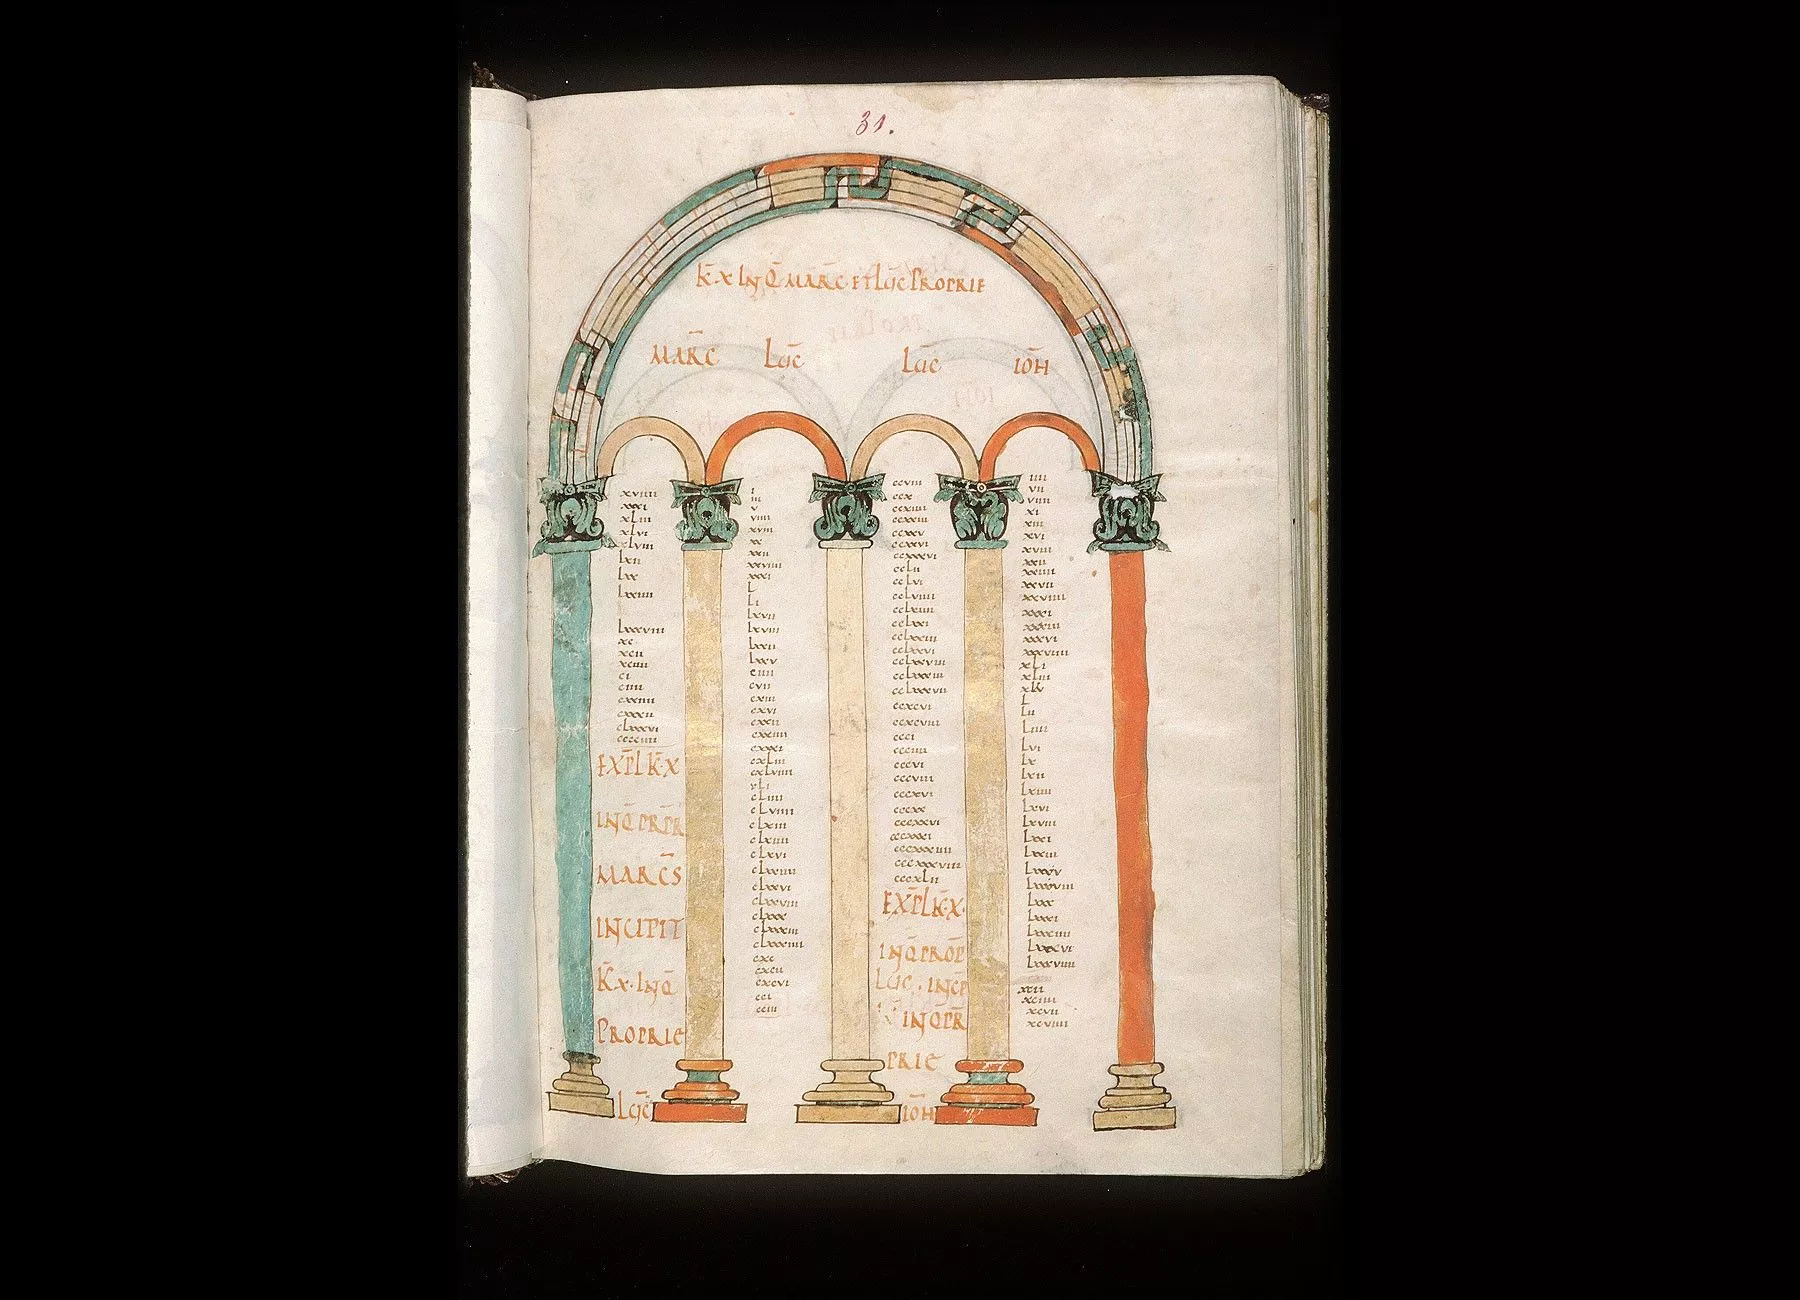 31.
K̄ X INQ̄ MARC̄ ET LUC̄ PROPRIE
MARC̄
LUC̄
LUC̄
IOH̄
xviiii
xxxi
xLiii
xLvi
xLviii
Lxii
Lxx
Lxxiiii
Lxxxviii
xc
xcii
xciiii
ci
ciiii
cxxiiii
cxxxii
cLxxxvi
EXPL K̄ X
INQ̄ PR̄PR̄
MARC̄S
INCIPIT
K̄ X INQ̄
PROPRIE
LUC̄
i
iii
v
viiii
xviii
xx
xxii
xxviiii
xxxi
L
Li
Lxvii
Lxviii
Lxxii
Lxxv
ciiii
cvii
cxiii
cxvi
cxxii
cxxiiii
cxxxi
cxLiii
cxLviiii
cLiiii
cLviiii
cLxiii
cLxiiii
cLxvi
cLxxiiii
cLxxvi
cLxxviii
cLxxx
cLxxxiii
cLxxxiiii
cxc
cxcii
cxcvi
cci
cciii
ccviii
ccx
ccxiiii
ccxxiii
ccxxv
ccxxvi
ccxxxvi
ccLii
ccLvi
ccLviiii
ccLxiiii
ccLxxi
ccLxxiii
ccLxxvi
ccLxxviii
ccLxxxiii
ccLxxxvii
ccxcvi
ccxcviii
ccci
ccciiii
cccvi
cccviii
cccxvi
cccxx
cccxxvi
cccxxxi
cccxxxiiii
cccxxxviii
cccxLii
EXPL K̄ X.
INQ̄ PROP̄
LUC̄ . INCP̄
K̄ INQ̄ PR̄
PRIE
IOH̄
iiii
vii
viiii
xi
xiii
xvi
xviii
xxii
xxiiii
xxvii
xxviiii
xxxi
xxxiii
xxxvi
xxxviiii
xLi
xLiii
xLv
L
Lii
Liiii
Lvi
Lx
Lxii
Lxiiii
Lxvi
Lxviii
Lxxi
Lxxiii
Lxxv
Lxxviii
Lxxx
Lxxxi
Lxxxiiii
Lxxxvi
Lxxxviiii
xcii
xciiii
xcvii
xcviiii